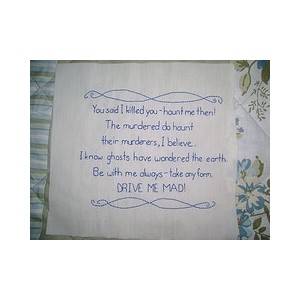 You said I killed you - haunt me then!
The murdered do haunt
their murderers, I believe...
I know ghosts have wondered the earth.
Be with me always - take any form.
DRIVE ME MAD!